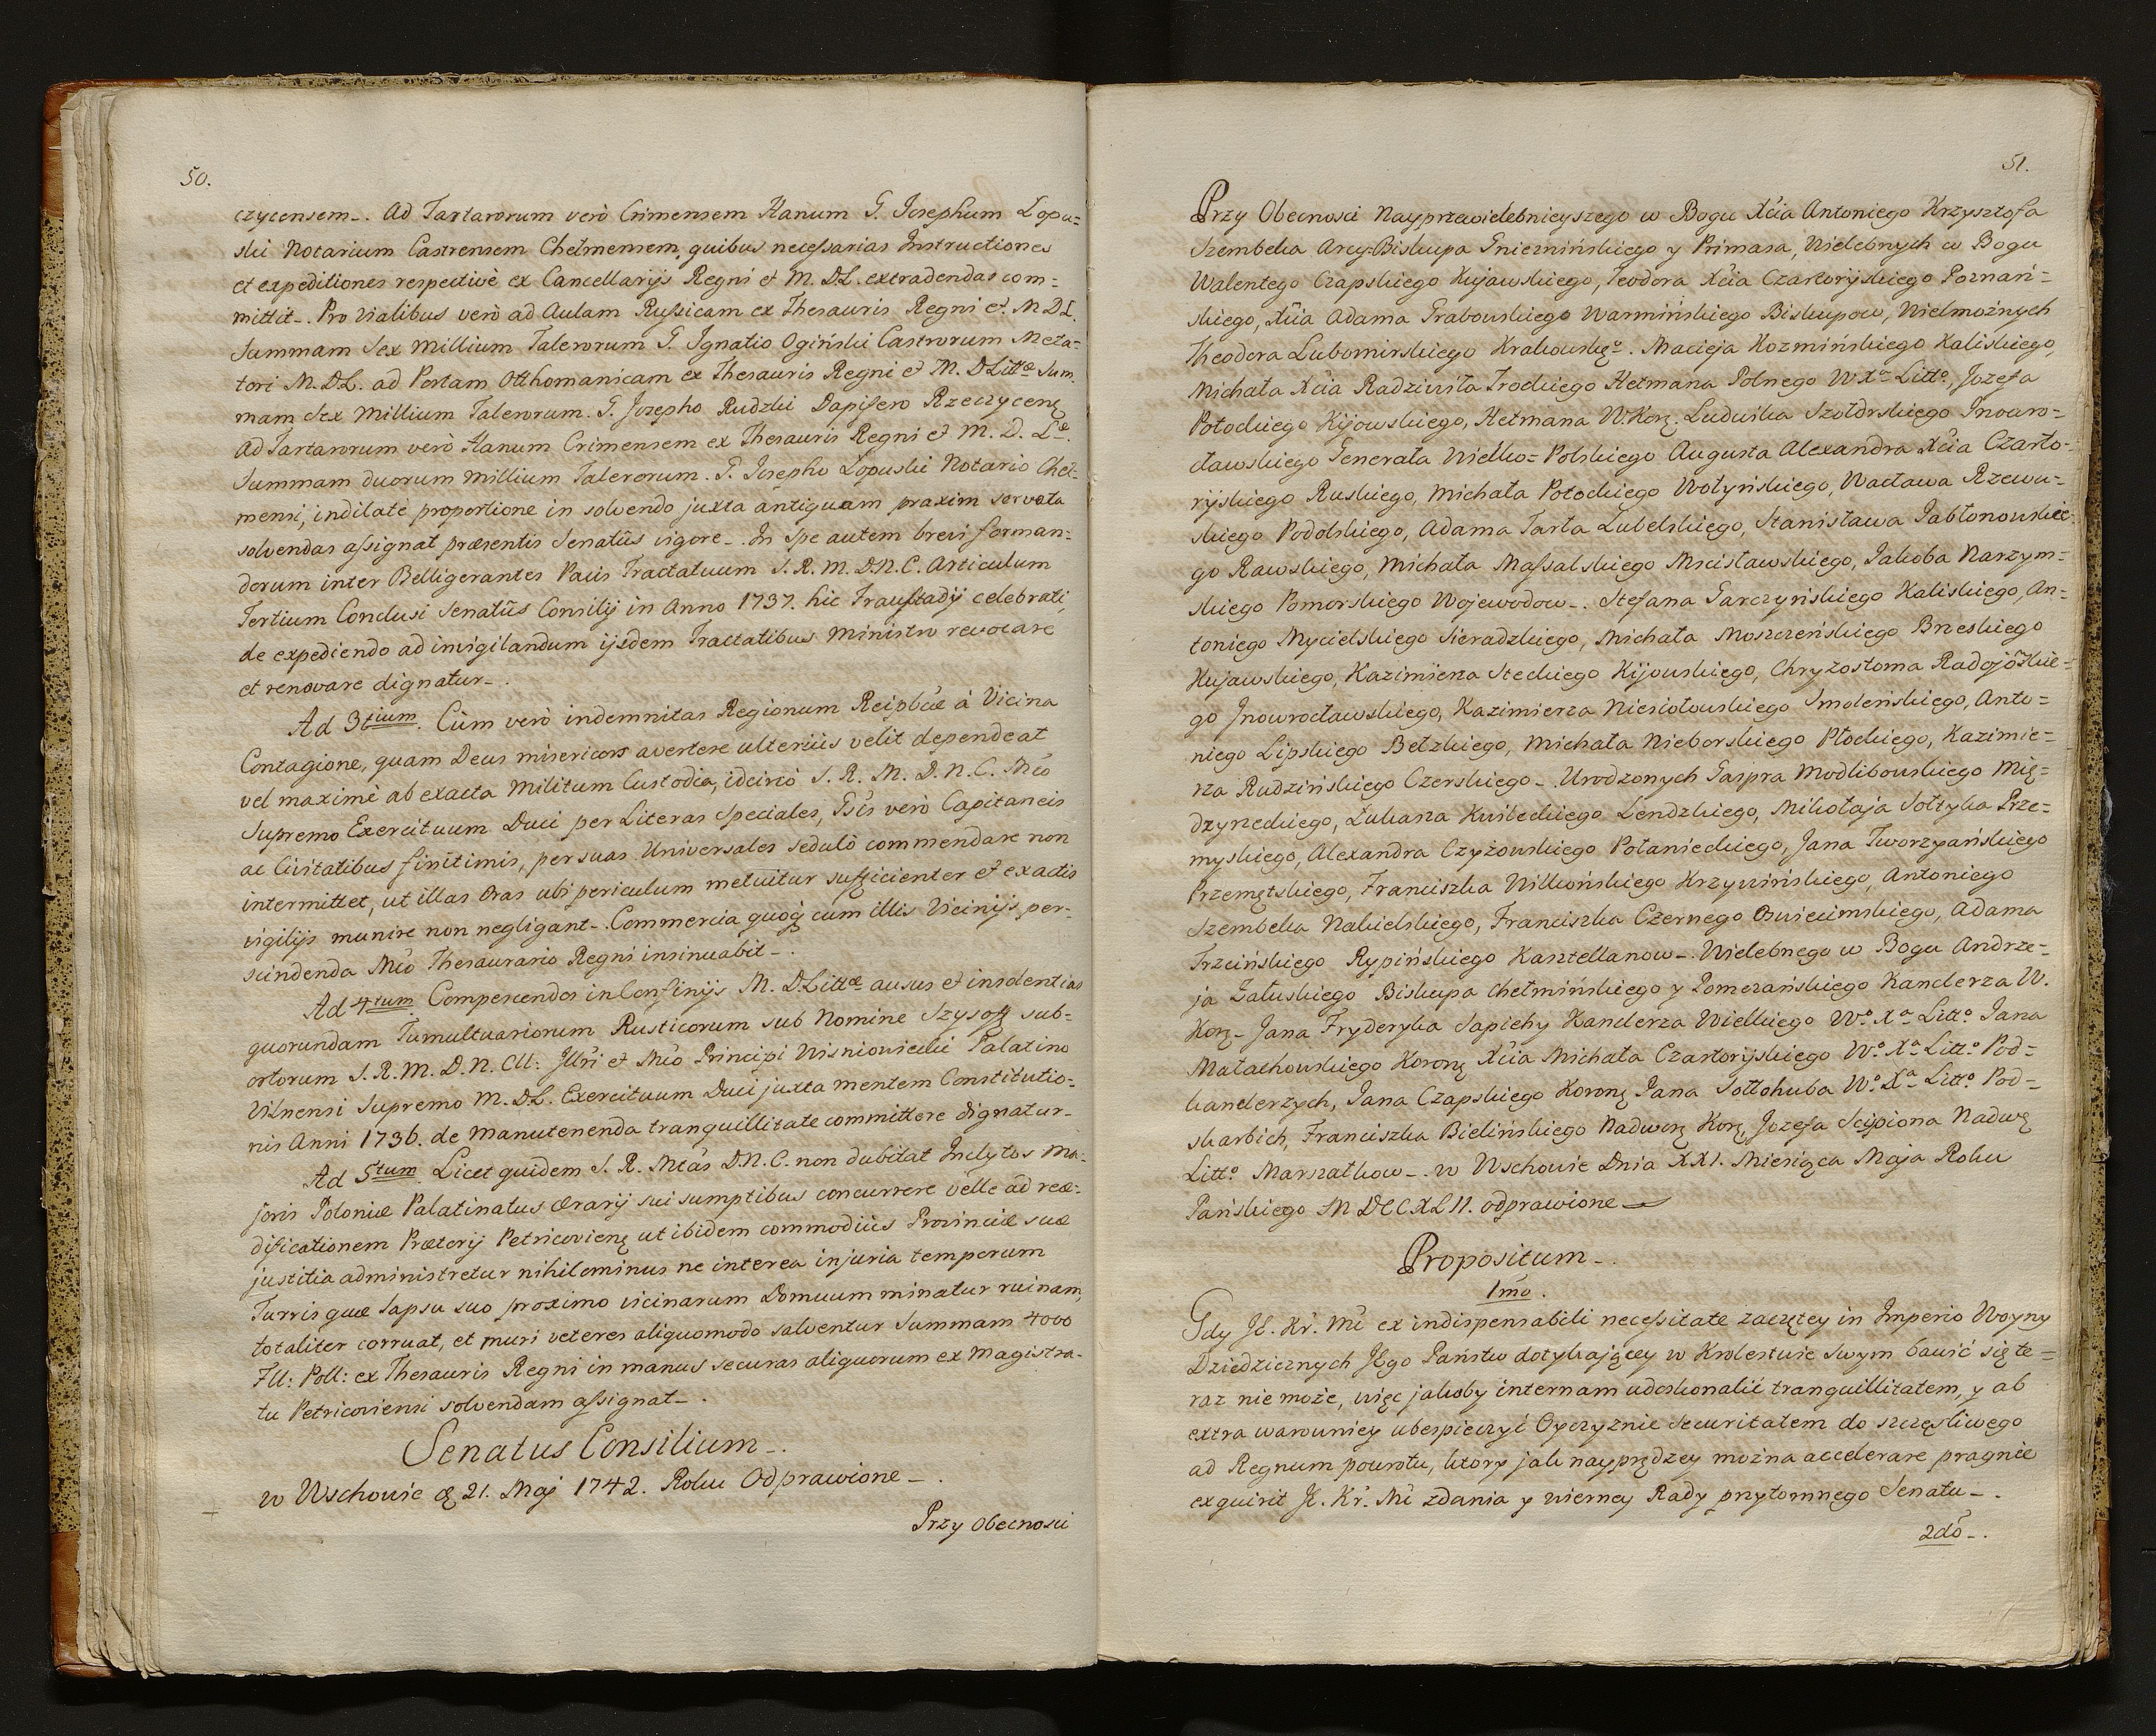 50.
czycensem_. Ad Tartarorum verò Crimensem Hanum G. Josephum Łopu=
ski Notarium Castrensem Chełmensem, quibus necessarias Instructiones
et expeditiones respectivè ex Cancellarijs Regni et M. D.L. extradendas com=
mittit_. Pro Vialibus verò ad Aulam Russicam ex Thesauris Regni et M D L.
Summam Sex Millium Talerorum G. Ignatio Ogiński Castrorum Meta=
tori M. D.L. ad Portam Otthomanicam ex Thesauris Regni et M. D Littæ Sum=
mam Sex Millium Talerorum. G. Josepho Rudzki Dapifero Rzeczycenę
Ad Tartarorum verò Hanum Crimensem ex Thesauris Regni et M. D. Læ.
Summam duorum Millium Talerorum. G. Josepho Łopuski Notario Cheł=
mensi, indilatè proportione in solvendo juxta antiquam praxim servata
solvendas assignat præsentis Senatûs vigore_. In Spe autem brevi forman=
dorum inter Belligerantes Pacis Tractatuum S. R. M. D.N. C. Articulum
Tertium Conclusi Senatûs Consilij in Anno 1737. hic Fraustadij celebrati,
de expediendo ad invigilandum ijsdem Tractatibus Ministro revocare
et renovare dignatur_.
Ad 3tium. Cùm verò indemnitas Regionum Reipbcæ à Vicina
Contagione, quam Deus misericors avertere ulteriùs velit dependeat
vel maximè ab exacta Militum Custodia, idcircò S. R. M. D. N. C. Mco
Supremo Exercituum Duci per Literas Speciales, Gsis verò Capitaneis
ac Civitatibus finitimis, per suas Universales sedulò commendare non
intermittet, ut illas Oras ubi periculum metuitur sufficienter et exactis
vigilijs munire non negligant_. Commercia quoq cum illis Vicinijs, per=
scindenda Mco Thesaurario Regni insinuabit_.
Ad 4tum. Compescendos in Confinijs M. D.Littæ ausus et insolentias
quorundam Tumultuariorum Rusticorum sub Nomine Szysoff sub=
ortorum S. R. M. D. N. Cll: Jllri et Mco Principi Wisniowiecki Palatino
Vilnensi Supremo M. D.L. Exercituum Duci juxta mentem Constitutio=
nis Anni 1736. de Manutenenda tranquillitate committere dignatur_
Ad 5tum. Licet quidem S. R. Mtas D.N. C. non dubitat Inclytos Ma=
joris Poloniæ Palatinatus ærarij sui sumptibus concurrere velle ad reæ=
dificationem Prætorij Petricovienę ut ibidem commodiùs Provinciæ suæ
justitia administretur nihilominus ne interea injuria temporum
Turris quæ lapsu suo proximo vicinarum Domuum minatur ruinam,
totaliter corruat, et muri veteres aliquomodo salventur Summam 4000
Fll: Poll: ex Thesauris Regni in manus securas aliquorum ex Magistra=
tu Petricoviensi solvendam assignat_.
Senatus Consilium_.
w Wschowie d. 21. Maj 1742. Roku Odprawione_.
Przy Obecnosci
51.
Przy Obecnosci Nayprzewielebnieyszego w Bogu Xcia Antoniego Krzysztofa
Szembeka Arcy=Biskupa Gnieznińskiego y Primasa, Wielebnych w Bogu
Walentego Czapskiego Kujawskiego, Teodora Xcia Czartoryskiego Poznań=
skiego, Xcia Adama Grabowskiego Warmińskiego Biskupow, Wielmożnych
Theodora Lubomirskiego Krakowskęo. Macieja Kozmińskiego Kaliskiego,
Michała Xcia Radziwiła Trockiego Hetmana Polnego W Xa Litto, Jozefa
Potockiego Kijowskiego, Hetmana W. Korę. Ludwika Szołdrskiego Inowro=
cławskiego Generała Wielko=Polskiego Augusta Alexandra Xcia Czarto=
ryskiego Ruskiego, Michała Potockiego Wołyńskiego, Wacława Rzewu=
skiego Podolskiego, Adama Tarła Lubelskiego, Stanisława Jabłonowskie=
go Rawskiego, Michała Massalskiego Mscisławskiego, Jakoba Narzym=
skiego Pomorskiego Wojewodow_. Stefana Garczyńskiego Kaliskiego, An=
toniego Mycielskiego Sieradzkiego, Michała Moszczeńskiego Brzeskiego
Kujawskiego, Kazimierza Steckiego Kijowskiego, Chryzostoma Radojoskie=
go Inowrocławskiego, Kazimierza Niesiołowskiego Smoleńskiego, Anto=
niego Lipskiego Bełzkiego, Michała Nieborskiego Płockiego, Kazimie=
rza Rudzińskiego Czerskiego_. Urodzonych Gaspra Modlibowskiego Mię=
dzyrzeckiego, Łukasza Kwileckiego Lendzkiego, Mikołaja Sołtyka Prze=
myskiego, Alexandra Czyżowskiego Połanieckiego, Jana Tworzyańskiego
Przemętskiego, Franciszka Wilkońskiego Krzywińskiego, Antoniego
Szembeka Nakielskiego, Franciszka Czernego Oswiecimskiego, Adama
Trzcińskiego Rypińskiego Kasztellanow_. Wielebnego w Bogu Andrze=
ja Załuskiego Biskupa Chełmińskiego y Pomezańskiego Kanclerza W.
Korę_ Jana Fryderyka Sapiehy Kanclerza Wielkiego Wo Xa Litto Jana
Małachowskiego Koronę Xcia Michała Czartoryskiego Wo Xa Litto Pod=
kanclerzych, Jana Czapskiego Koronę Jana Sołłohuba Wo Xa Litto Pod=
skarbich, Franciszka Bielińskiego Nadworę Korę, Jozefa Scipiona Nadwę
Litto Marszałkow_. w Wschowie Dnia XXI. Miesiąca Maja Roku
Pańskiego M DCC XL II. odprawione_
Propositum_.
1mo.
Gdy JE. Kr. Mć ex indispensabili necessitate zaczętey in Imperio Woyny
Dziedzicznych JEgo Państw dotykającey w Krolestwie Swym bawić się te=
raz nie może, więc jakoby internam udoskonalić tranquillitatem, y ab
extra warowniey ubespieczyć Oyczyznie Securitatem do szczęsliwego
ad Regnum powrotu, ktory jak nayprędzey można accelerare pragnie
exquirit JE. Kr. Mć zdania y wierney Rady przytomnego Senatu_.
2do_.